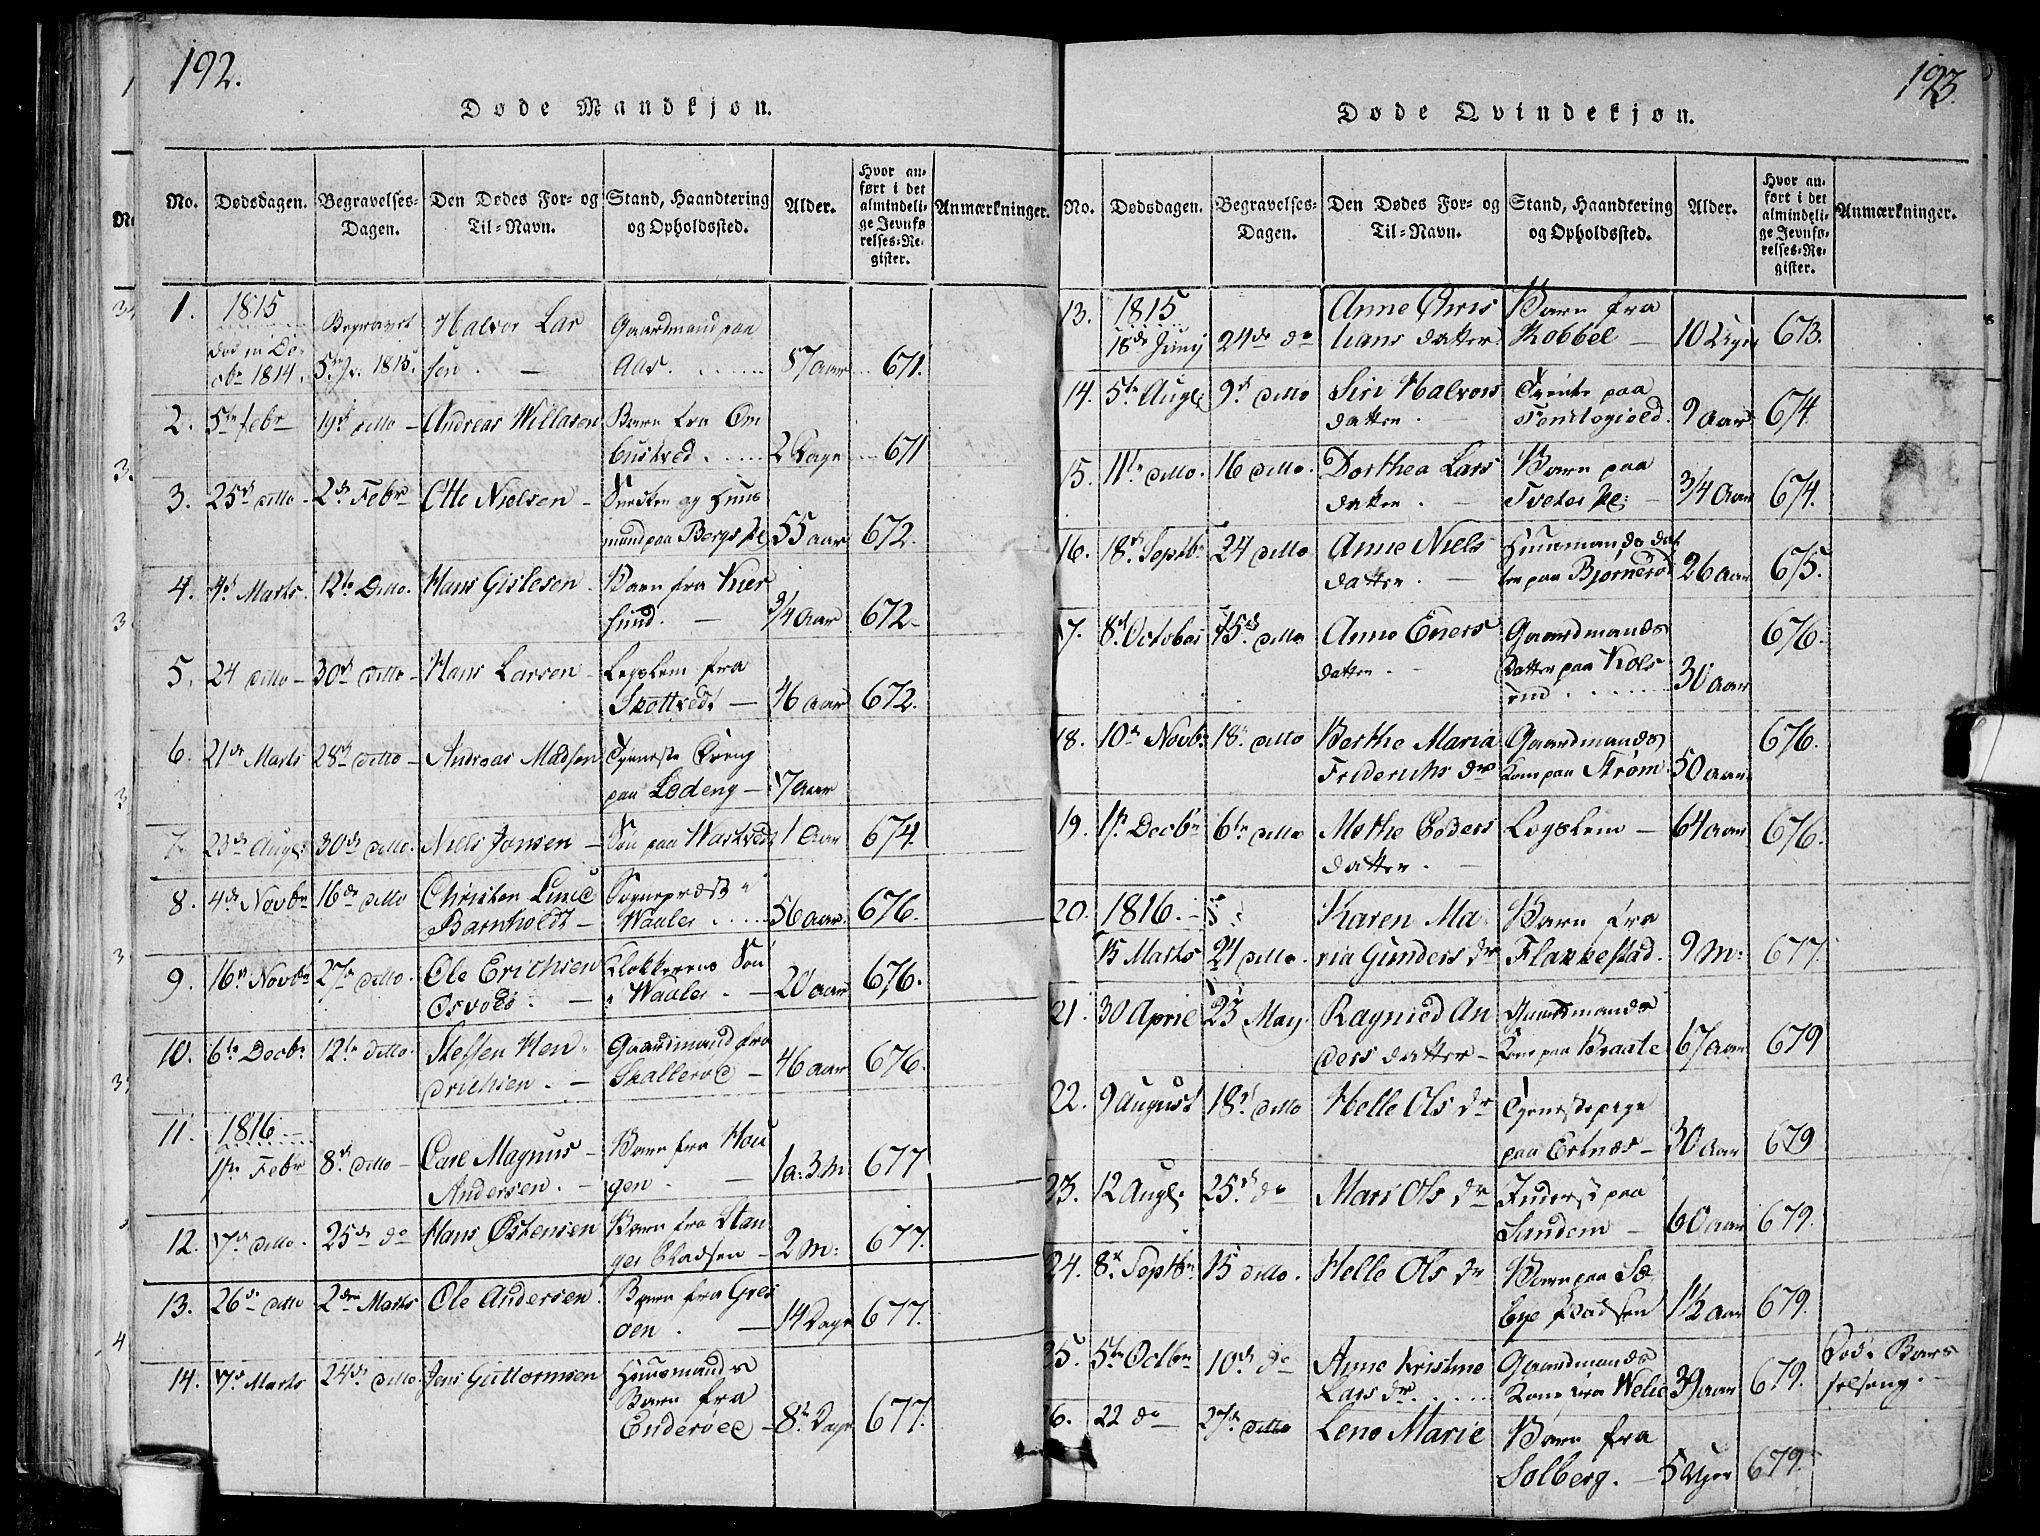 192.
Døde Mandkjøn.
No.
Dødsdagen.
Begravelses-
Dagen.
Den Dødes For- og
Til-Navn.
Stand, Haandtering
og Opholdssted.
Alder.
Hvor an-
ført i det
almindeli-
ge Jevnfø-
relses-Re-
gister.
Anmærkninger.
1. 1815
død in De- Begravet Halvor Lar Gaardmand paa
cbr 1814. 1815. sen. Aas. 57 aar 671.
2. 5te febr 19de ditto Andreas Willasen Barn fra Om
bustved. 2 Dage 671
3. 25de ditto 2de Febr Otte Nielsen Huus
mand paa Bergs 55 aar 672.
4. 4de Marts 12te Ditto. Hans Gislesen Barn fra Kier
sund. 3/4 aar 672.
5. 24 ditto 30te ditto Hans Larsen Legslem fra
Skottved. 46 aar 672.
6. 21de Marts 28de ditto Andreas Madsen Tjeneste Dreng
paa Lødeng 17 aar
7. 23de Augst 30de ditto Niels Jonsen Søn paa Wastved 1 Aar 674.
8. 4de Novbr 16de ditto Christen Lund Sognepræst
Barnholdt Waaler 56 aar. 676.
9. 16de Novbr 27de ditto Ole Erichsen Klokkerens Søn
Osvold. Waaler. 20 aar 676.
10. 6te Decbr 12te ditto. Steffen Hen Gaardmand fra
drichsen. Skallerød 46 aar 676.
11. 1816
1ste Febr 8de ditto Carl Magnus Barn fra Hou
Andersen. gen 1a: 3m 677
12. 7de ditto. 25de do Hans Østensen Barn fra Stan
ger Pladsen 2 m: 677.
13. 26de ditto 2den Marts Ole Andersen Barn fra Gres
oen. 14 Dage 677.
14. 7de Marts 24de ditto. Jens Guttormsen Huusmands
Barn fra
Enderøed 8te Dage 677.
193.
Døde Qvindekjøn.
No.
Dødsdagen.
Begravelses-
Dagen.
Den Dødes For- og
Til-Navn.
Stand, Haandtering
og Opholdssted.
Alder.
Hvor an-
ført i det
almindeli-
ge Jevnfø-
relses-Re-
gister.
Anmærkninger.
13. 1815 Anne Chris Barn fra
18de Junij 24de do tians datter Kobbel 10 Uger 673.
14. 5te Augst 9de ditto Siri Halvors paa
datter. 9 aar 674.
15. 11te ditto 16 ditto. Dorthea Lars Barn paa
datter. Tveter 3/4 Aar 674.
16. 18de Septbr 24 ditto Anne Niels Huusmands dat
datter. ter paa Bjørnerød 26 aar 675.
17. 8de October 15de ditto Anne Eners Gaardmands 676.
datter. Datter paa Kols
rud 30 aar
18. 10de Novbr 18de ditto Berthe Maria Gaardmands 676.
Friderichs dr Kone paa Strøm. 50 aar
19. 1ste Decbr 6te ditto Methe Peders Legslem 64 aar 676.
datter.
20. 1816. Karen Ma Barn fra
15 Marts 24 ditto. ria Gunders dr Flakkestad. 9 m: 677.
21. 30 April 23 May. Ragnild An Gaardmands
ders datter Kone paa Braate 67 aar 679
22. 9 August 18de ditto Helle Ols dr Tjenestepige
paa Ertnæs 30 aar 679
23. 12 Augst. 25de do Mari Ols dr Inderst paa
Sandem 60 aar 679.
24. 8de Septbr. 15 ditto. Helle Ols dr Barn paa Sæ
bye Pladsen 1 1/2 aar 679.
25. 5te Octbr 10de do Anne Kristine Gaardmands Død i Bars
Lars dr. Kone fra Welie 39 aar 679. felseng.
26. 22 do 27de ditto Lene Marie Barn fra
Solberg. 5 Uger 679.